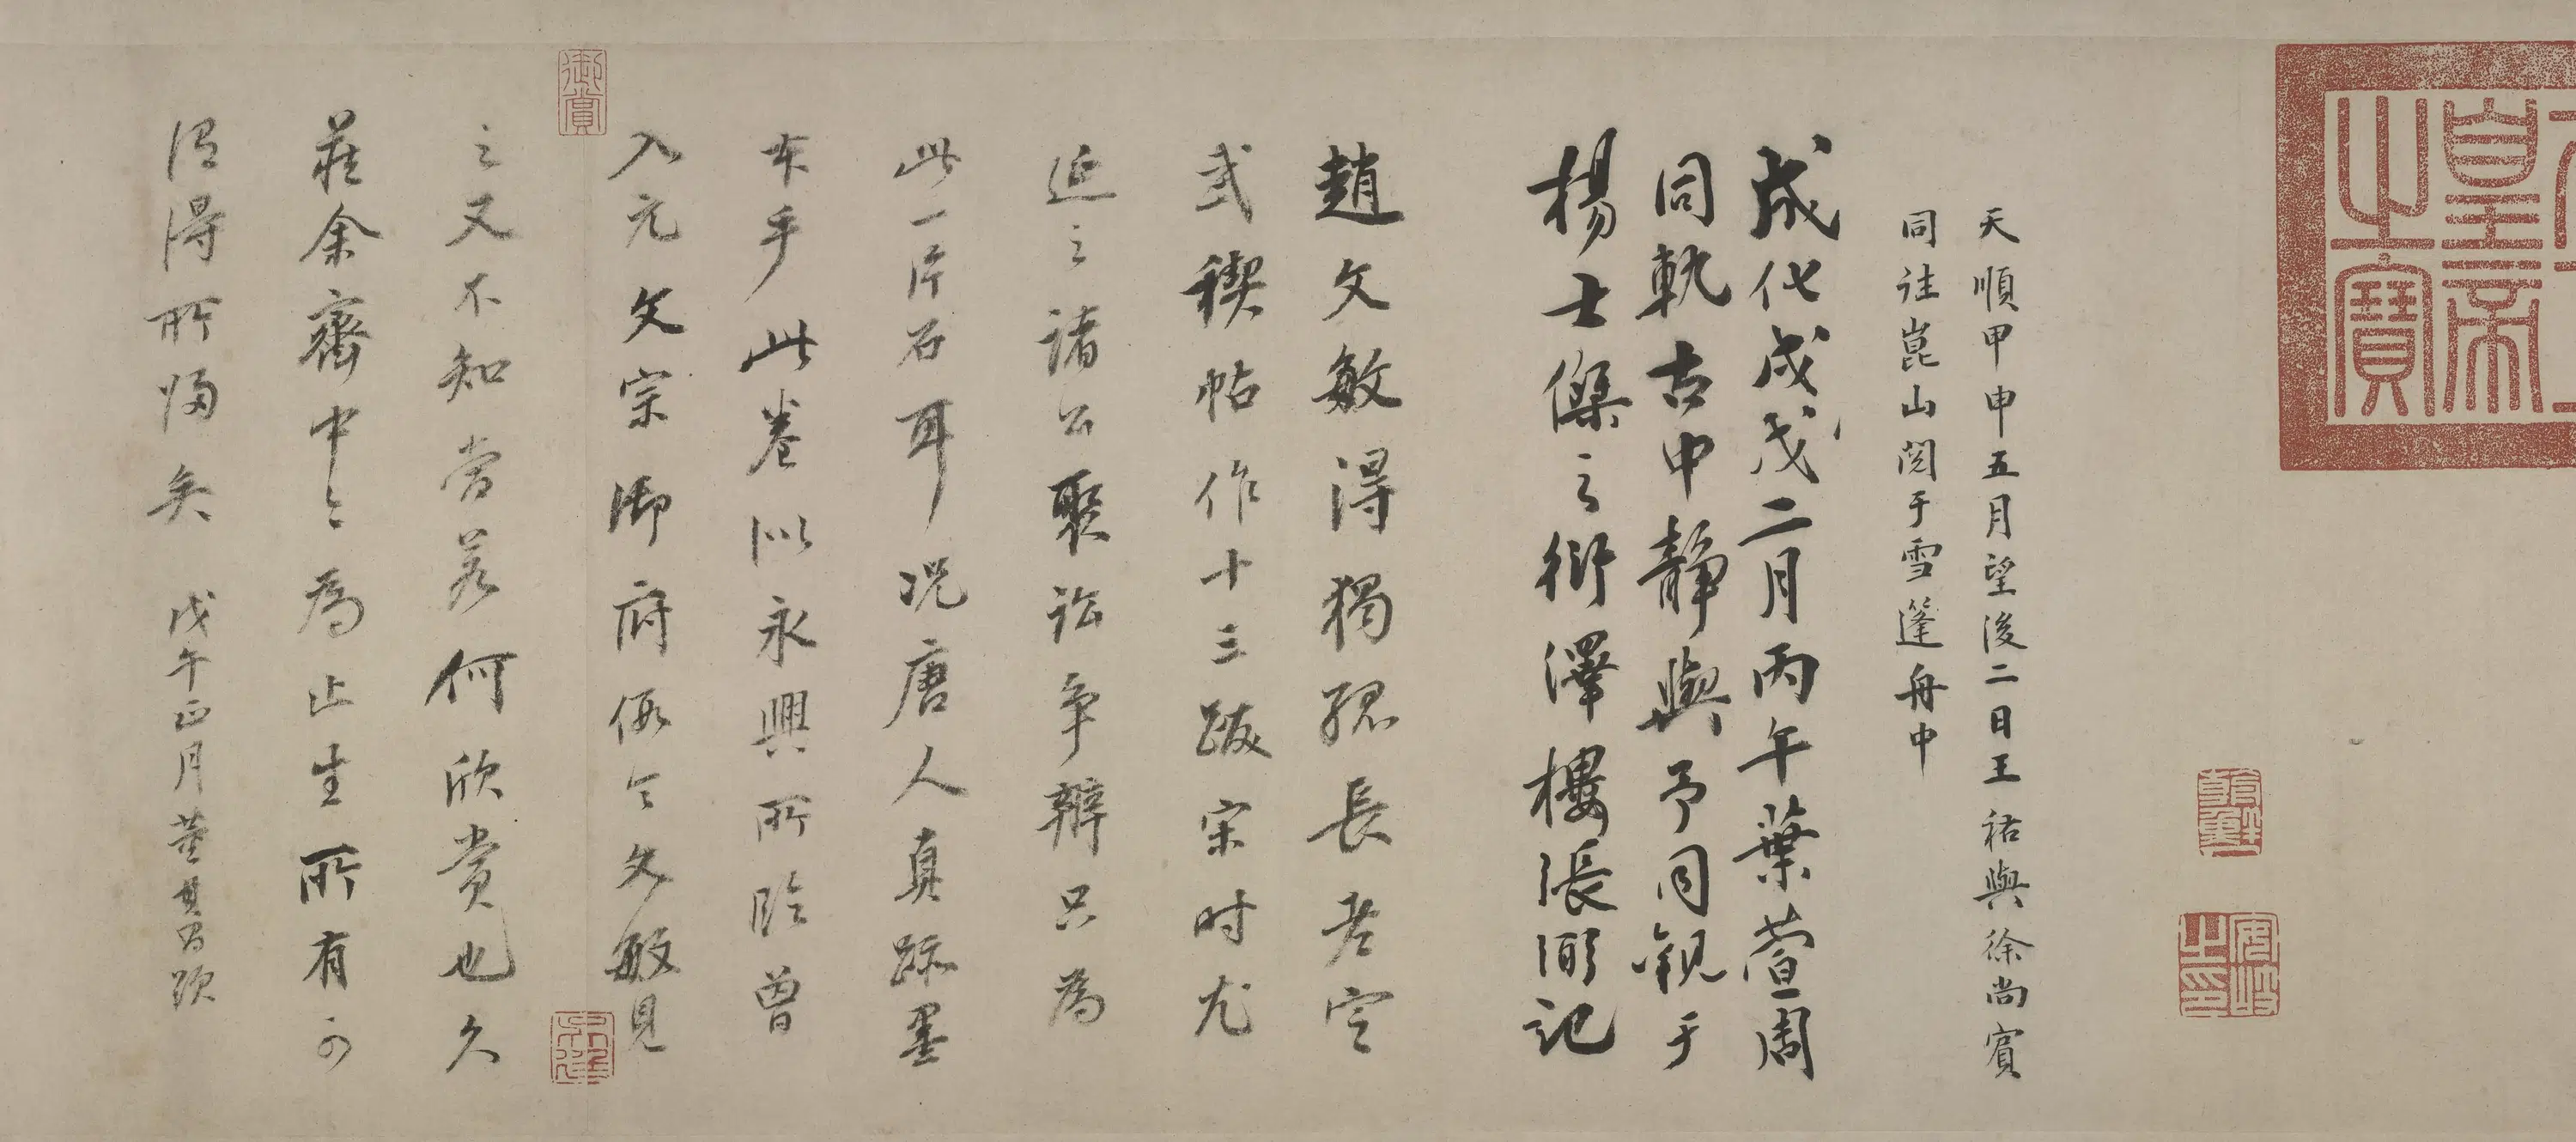 皇帝
之寶
天順甲申五月望後二日王祐與徐尚賓
同往崑山閱于雪篷舟中
成化戊戌二月丙午葉萱周
同軌古中靜與予同観于
楊士傑之衍澤樓張弼記
趙文敏得獨孤長老定
武禊帖作十三跋宋时尤
延之諸公聚訟争辨只為
此一片石耳况唐人真跡墨
本乎此卷似永興所臨曾
入元文宗御府假令文敏見
之又不知當若何欣賞也久
藏余齋中々為止生所有可
謂得所歸矣 戊午正月董其昌跋
御賞